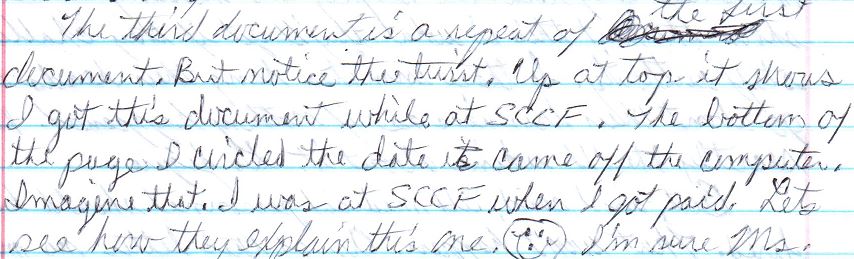 The third document is a repeat of the first
document. But notice the twist. Up at top it shows
I got this document while at SCCF. The bottom of
the page I circled the date it came off the computer.
Imagine that. I was at SCCF when I got paid. Lets
see how they explain this one. I'm sure Ms.